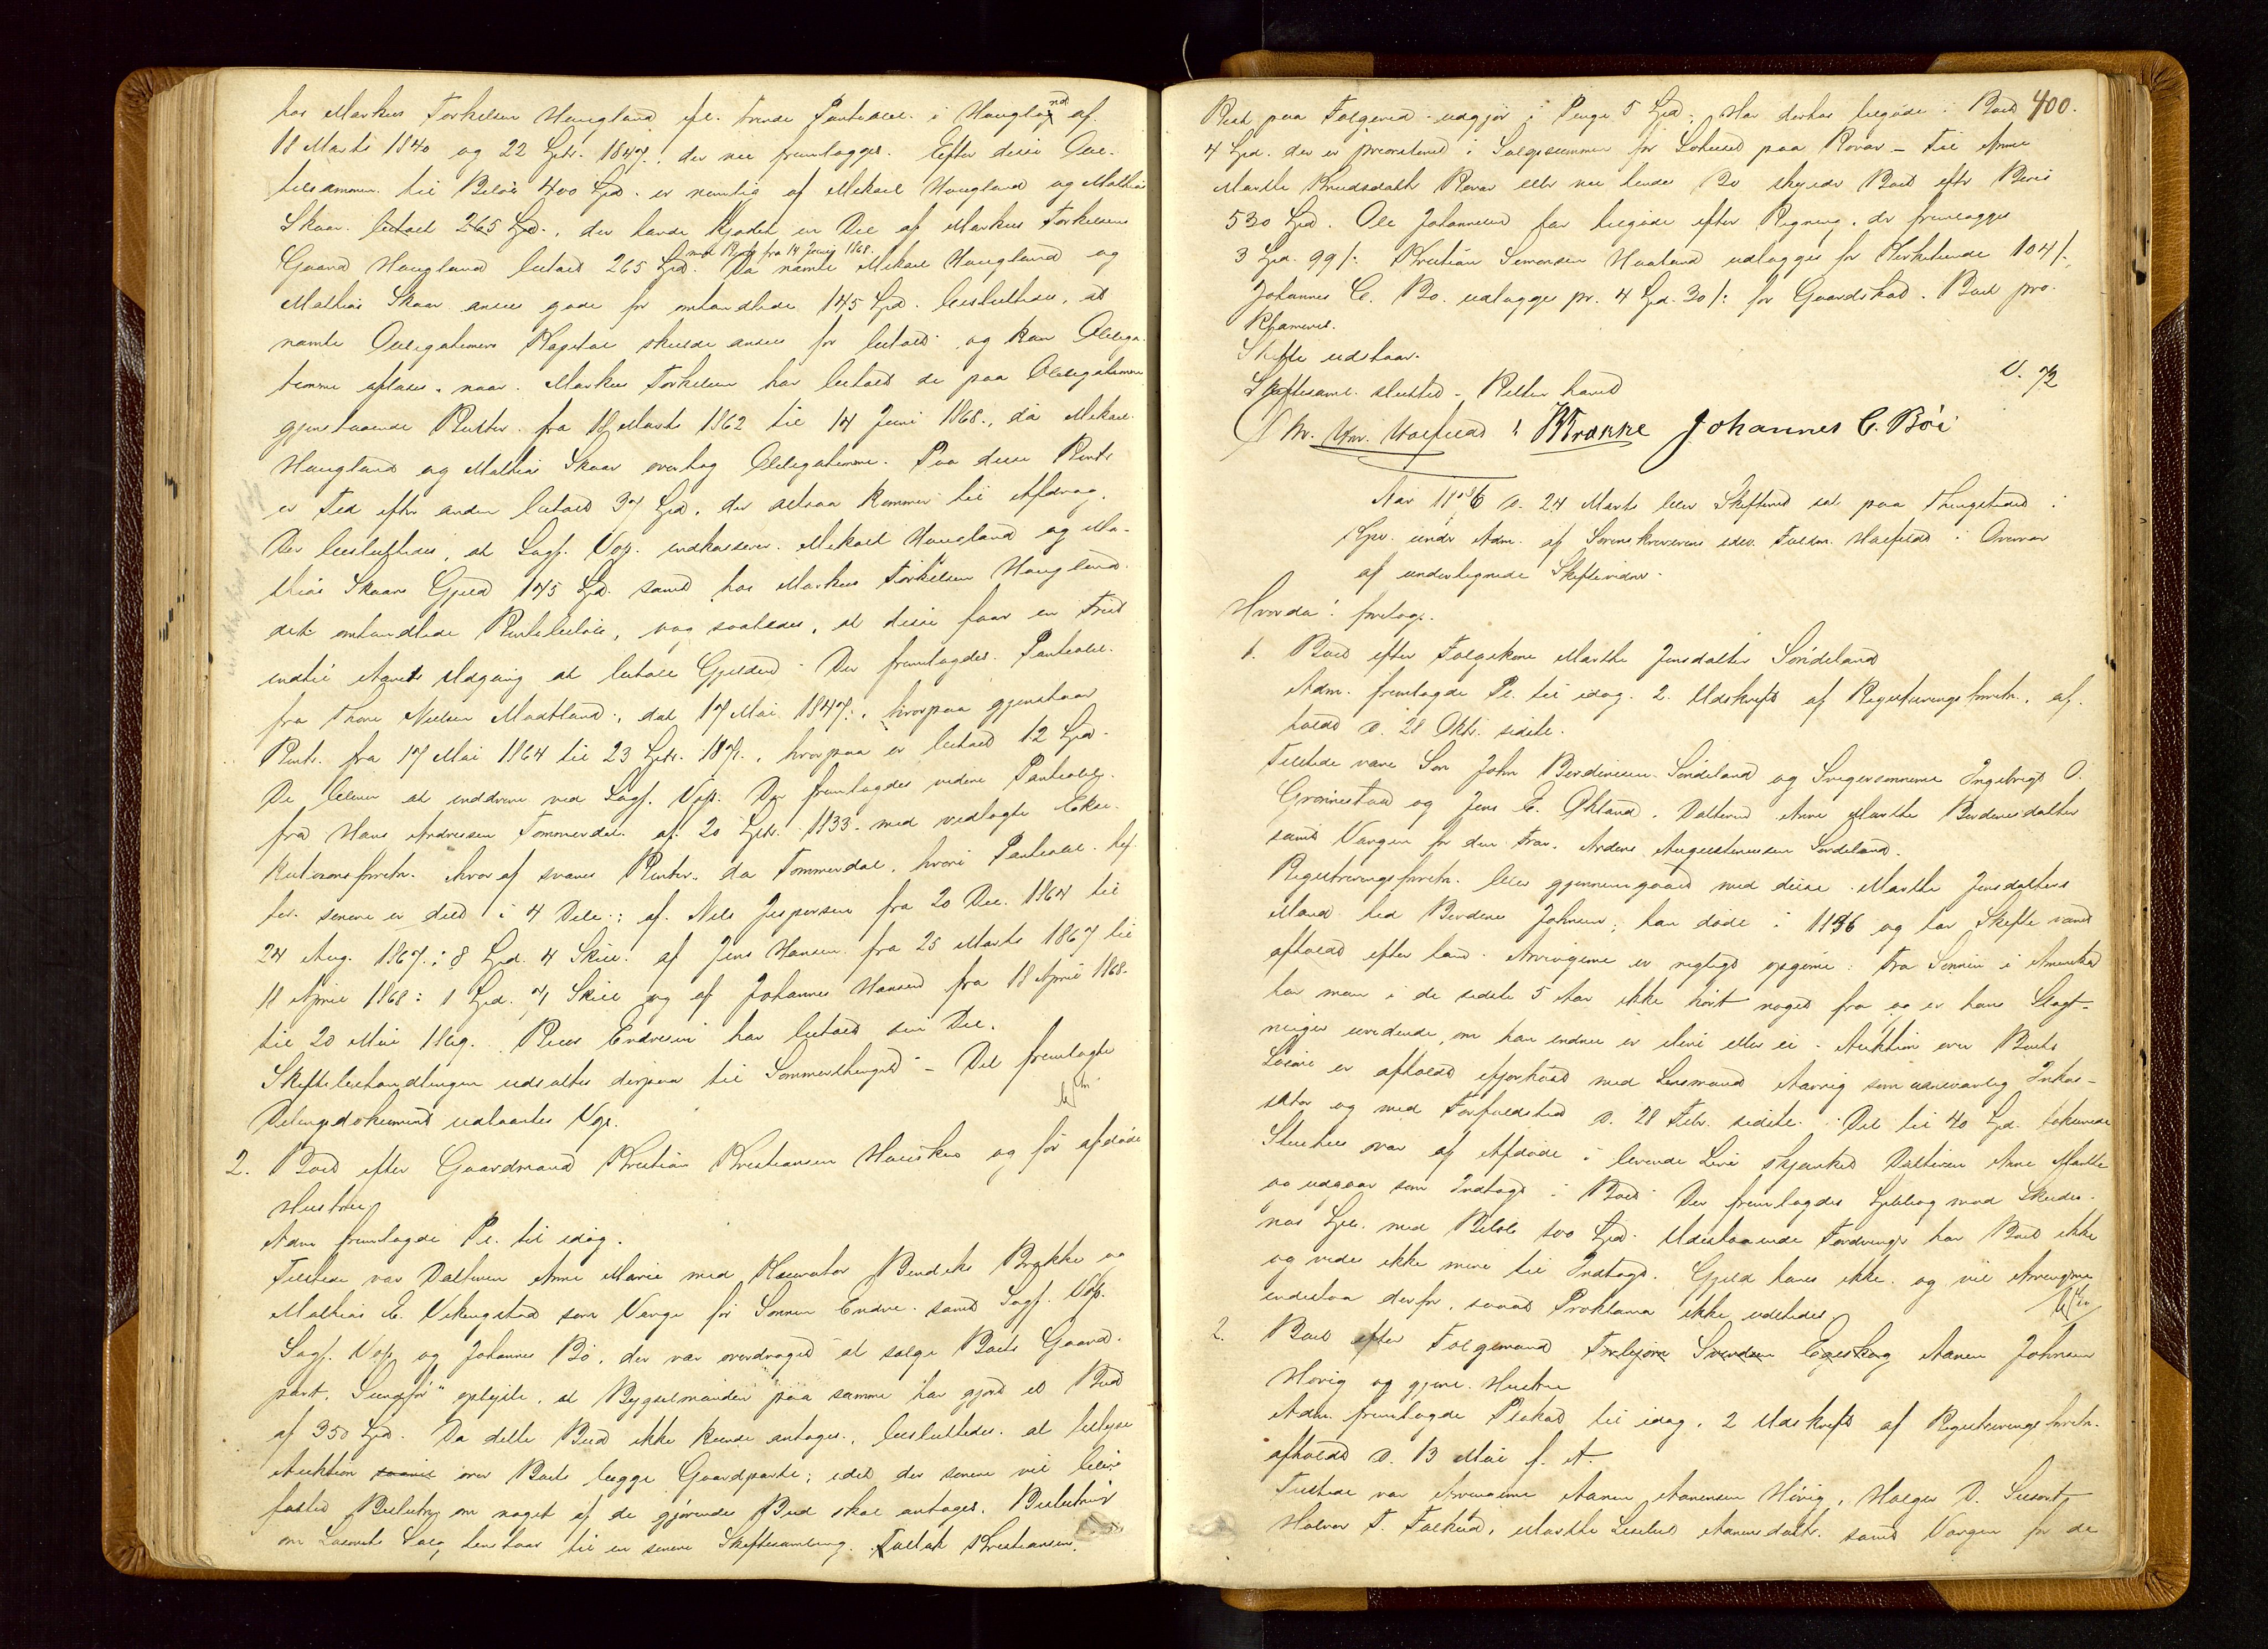 hos Markus Torkelsen Haugland ifl. trende Panteobl. i Haugland af
18 Marts 1840 og 22 Sptr. 1847, der nu fremlagges. Efter disse Obl.
tilsammen til Beløb 400 Spd. er nemlig af Mikael Haugland og Mathias
Skaar betalt 265 Spd., der havde kjøbt en Del af Markus Torkelsens
Gaard Haugland betalt 265 Spd. med Rente fra 14 Juni 1868. Da nævnte Mikael Haugland og
Mathias Skaar anses gode for omhandlede 145 Spd. besluttedes, at
nævnte Obligationers Kapital skulde anses for betalt og kan Obliga-
tionerne aflæses, naar Markus Torkelsen har betalt de paa Obligationerne
gjenstaaende Renter fra 18 Marts 1862 til 14 Juni 1868, da Mikael
Haugland og Mathias Skaar overtog Obligationerne. Paa disse Rente
er Tid efter anden betalt 37 Spd., der altsaa kommer til Afdrag.
Det besluttedes, at Sagf. Vop. indkasserer Mikael Haugland og Ma-
thias Skaars Gjeld 145 Spd. samt hos Markus Torkelsen Haugland
det omhandlede Rentebeløb, og saaledes, at disse faar en Frist
indtil Aarets Udgang at betale Gjelden. Der fremlagdes Panteobl.
fra Thore Nielsen Maatland, dat. 17 Mai 1847, hvorpaa gjenstaar
Rente fra 17 Mai 1864 til 23 Sptr. 187., hvorpaa er betalt 12 Spd.
De bliver at inddrive ved Sagf. Vop. Der fremlagdes videre Panteobl.
fra Hans Andreasen Tommerdal af 20 Sptr. 1833 med vedlagte Ekse-
kutionsforretn. hvoraf svares Renter, da Tommerdal, hvori Panteobl. hef-
ter senere er delt i 4 Dele: af Nils Jespersen fra 20 Dec. 1864 til
24 Aug. 1867: 8 Spd. 4 Skill. af Jens Hansen fra 25 Marts 1867 til
18 April 1868: 1 Spd. 71 Skill og af Johannes Hansen fra 18 April 1868
til 20 Mai 1869. Endresen har betalt sin Del.
Skiftebehandlingen udsattes derpaa til Sommerthinget – Det fremlagte
Delingsdokument udlaantes Vop.
2. Boet efter Gaardmand Kristian Kristiansen Hauskeo og før afdøde
Hustru
Adm fremlagde Pl. til idag.
Tilstede var Datteren Anne Marie med Kurator Bendiks Brække og
Mathias E. Vikingstad som Værge for Sønnen Endre samt Sagf. Vop.
Sagf. Vop. og Johannes Bø, der var overdraget at sælge Boets Gaard-
part, oplyste, at Bygselmanden paa samme har gjort et Bud
af 350 Spd. Da dette Bud ikke kunde antages, besluttedes at belyse
Auktion over Boets begge Gaardparte; idet der senere vil blive
fattet Beslutn. om noget af de gjørende Bud skal antages. Beslutning
om Løsørets Salg henstaar til en senere Skiftesamling. Tollak Kristiansen
400.
Rest paa Følgeret udgjør i Penge 5 Spd., Har derhos tilgode i Boet
4 Spd. der er prioriteret i Salgssummen for Løsøret paa Røvær – Til Anne
Marthe Knudsdatter Røvær eller nu hendes Bo skylder Boet efter Bevis
530 Spd. Ole Johannesen har tilgode efter Regning, der fremlægges
3 Spd. 99 /: Kristian Simonsen Haaland udlægges for Kirketiende 104 /:,
Johannes C. Bø udlægges pr. 4 Spd. 30 /: for Gaardskat. Boet pro-
klameres.
Skifte udstaar.
Skiftesaml. sluttet – Retten hævet
V. 72
Chr. Fr. Walfield : BBrække Johannes C. Bøe
Aar 1876 d. 24 Marts blev Skifteret sat paa Thingstedet i
under Adm. af Sorenskriverens edsv. Fuldm. Walfield i Overvær
af undertegnede Skiftevidner.
Hvorda: foretoges.
1. Boet efter Følgekone Marthe Jensdatter Søndeland
Adm. fremlagde Pl. til idag. 2. Udskrift af Registreringsforretn. af-
holdt d. 28 Oktr. sidste.
Tilstede vare Søn John Berdinesen Søndeland og Svigersønnerne Ingebrigt O.
Grønnestad og Jens E. Økland, Datteren Anne Marthe Berdinesdatter
samt Værgen for den frav. Ardine Augustinussen Søndeland.
Registreringsforretn. blev gjennemgaaet med disse. Marthe Jensdatters
Mand hed Berdines Johnsen; han døde i 1856 og har Skifte været
afholdt efter ham. Arvingerne er rigtigt opgivne: Fra Sønnen i Amerika
har man i de sidste 5 Aar ikke hørt noget fra og er hans Slægt-
ninger uvidende, om han endnu er ilive eller ei. Auktion over Boets
Løsøre er afholdt ifjorhøst med Lensmand Aavrig som uansvarlig Inkas-
sator og med Forfaldstid d. 28 Febr. sidste. Det til 40 Spd. taxerede
Stuehus var af Afdøde i levende Live skjænket Datteren Anne Marthe
og udgaar som Indtægt i Boet. Der fremlagdes Spbbog mod Skudes-
næs Spb. med Beløb 100 Spd. Udestaaende Fordringer har Boet ikke
og vides ikke mere til Indtægt. Gjeld haves ikke og vil Arvingerne
indestaa derfor, saaat Proklama ikke udstedes.
2. Boet efter Følgemand Torbjørn Svendsen Egeskog Aanen Johnsen
Høvig og gjenl. Hustru
Adm. fremlagde Plakat til idag. 2 Udskrift af Registreringsforretn.
afholdt d. 13 Mai f. A.
Tilstede var Arvingerne Aanen Aanensen Høvig, Holger D.
Halvor T. Falkeid, Marthe Lisebet Aanensdatr. samt Værgen for de